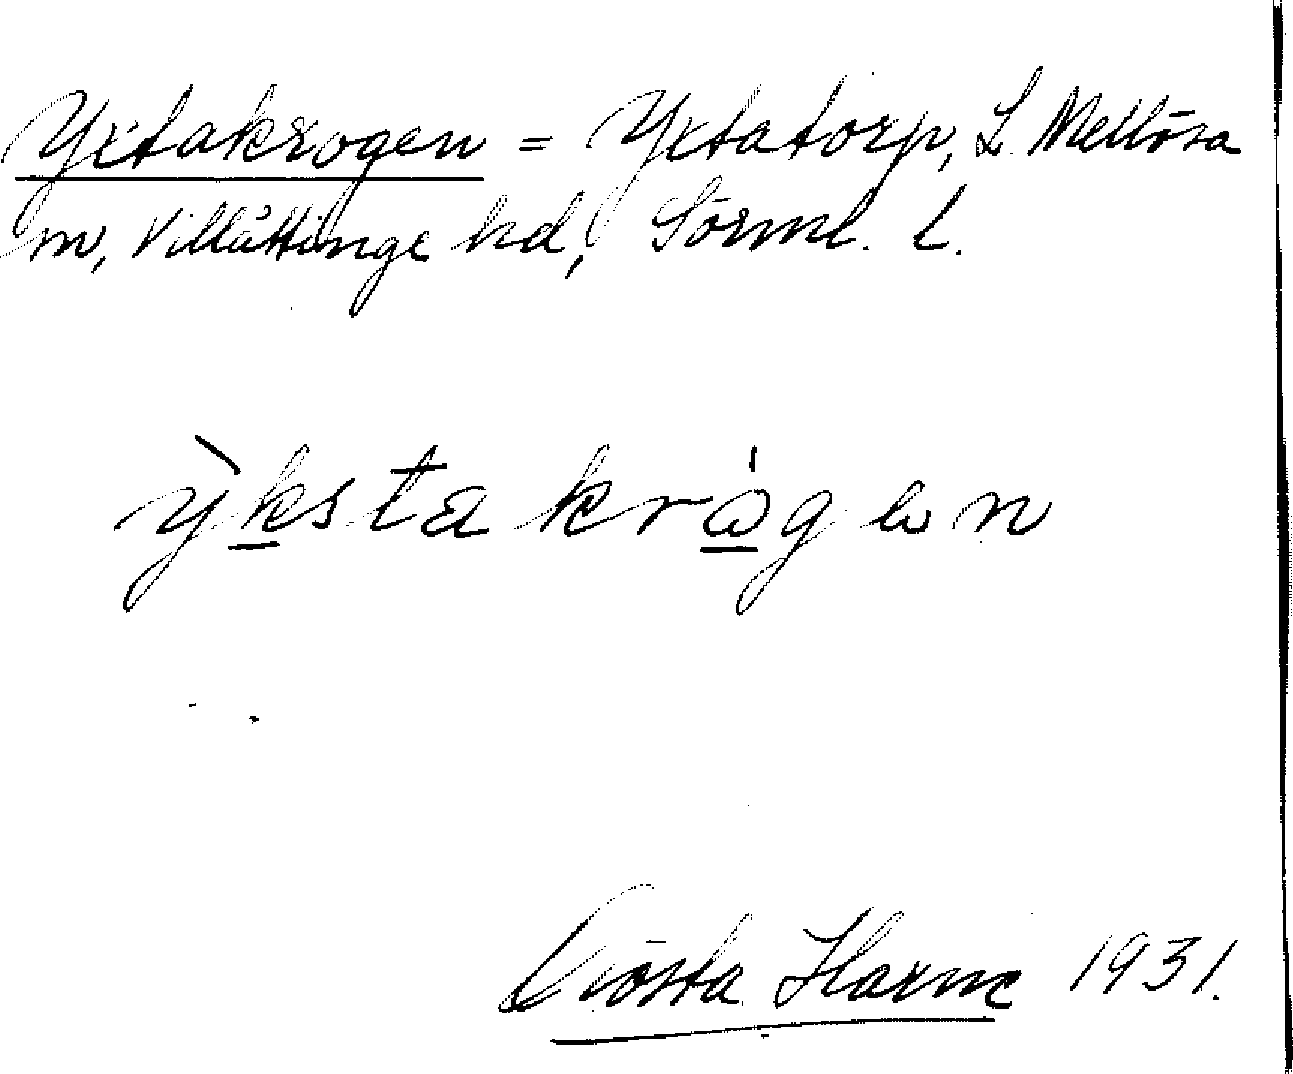 Yxtakrogen = Yxtatorp, L. Mellösa
sn, Villåttinge hd, Sörml. l.
ỳkstakrógən
Gösta Harne 1931.